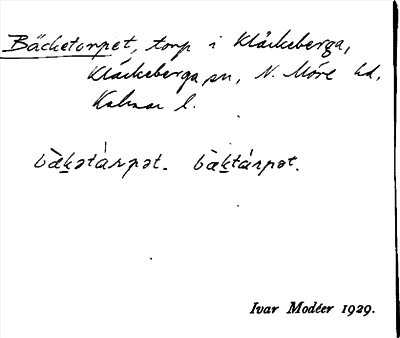 Bäcketorpet, torp i Kläckeberga,
Kläckeberga sn, N. Möre hd,
Kalmar l.
bàkətàrpət. bàktárpət.
Ivar Modéer 1929.